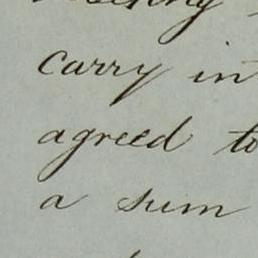 carry in
agreed to
a sum